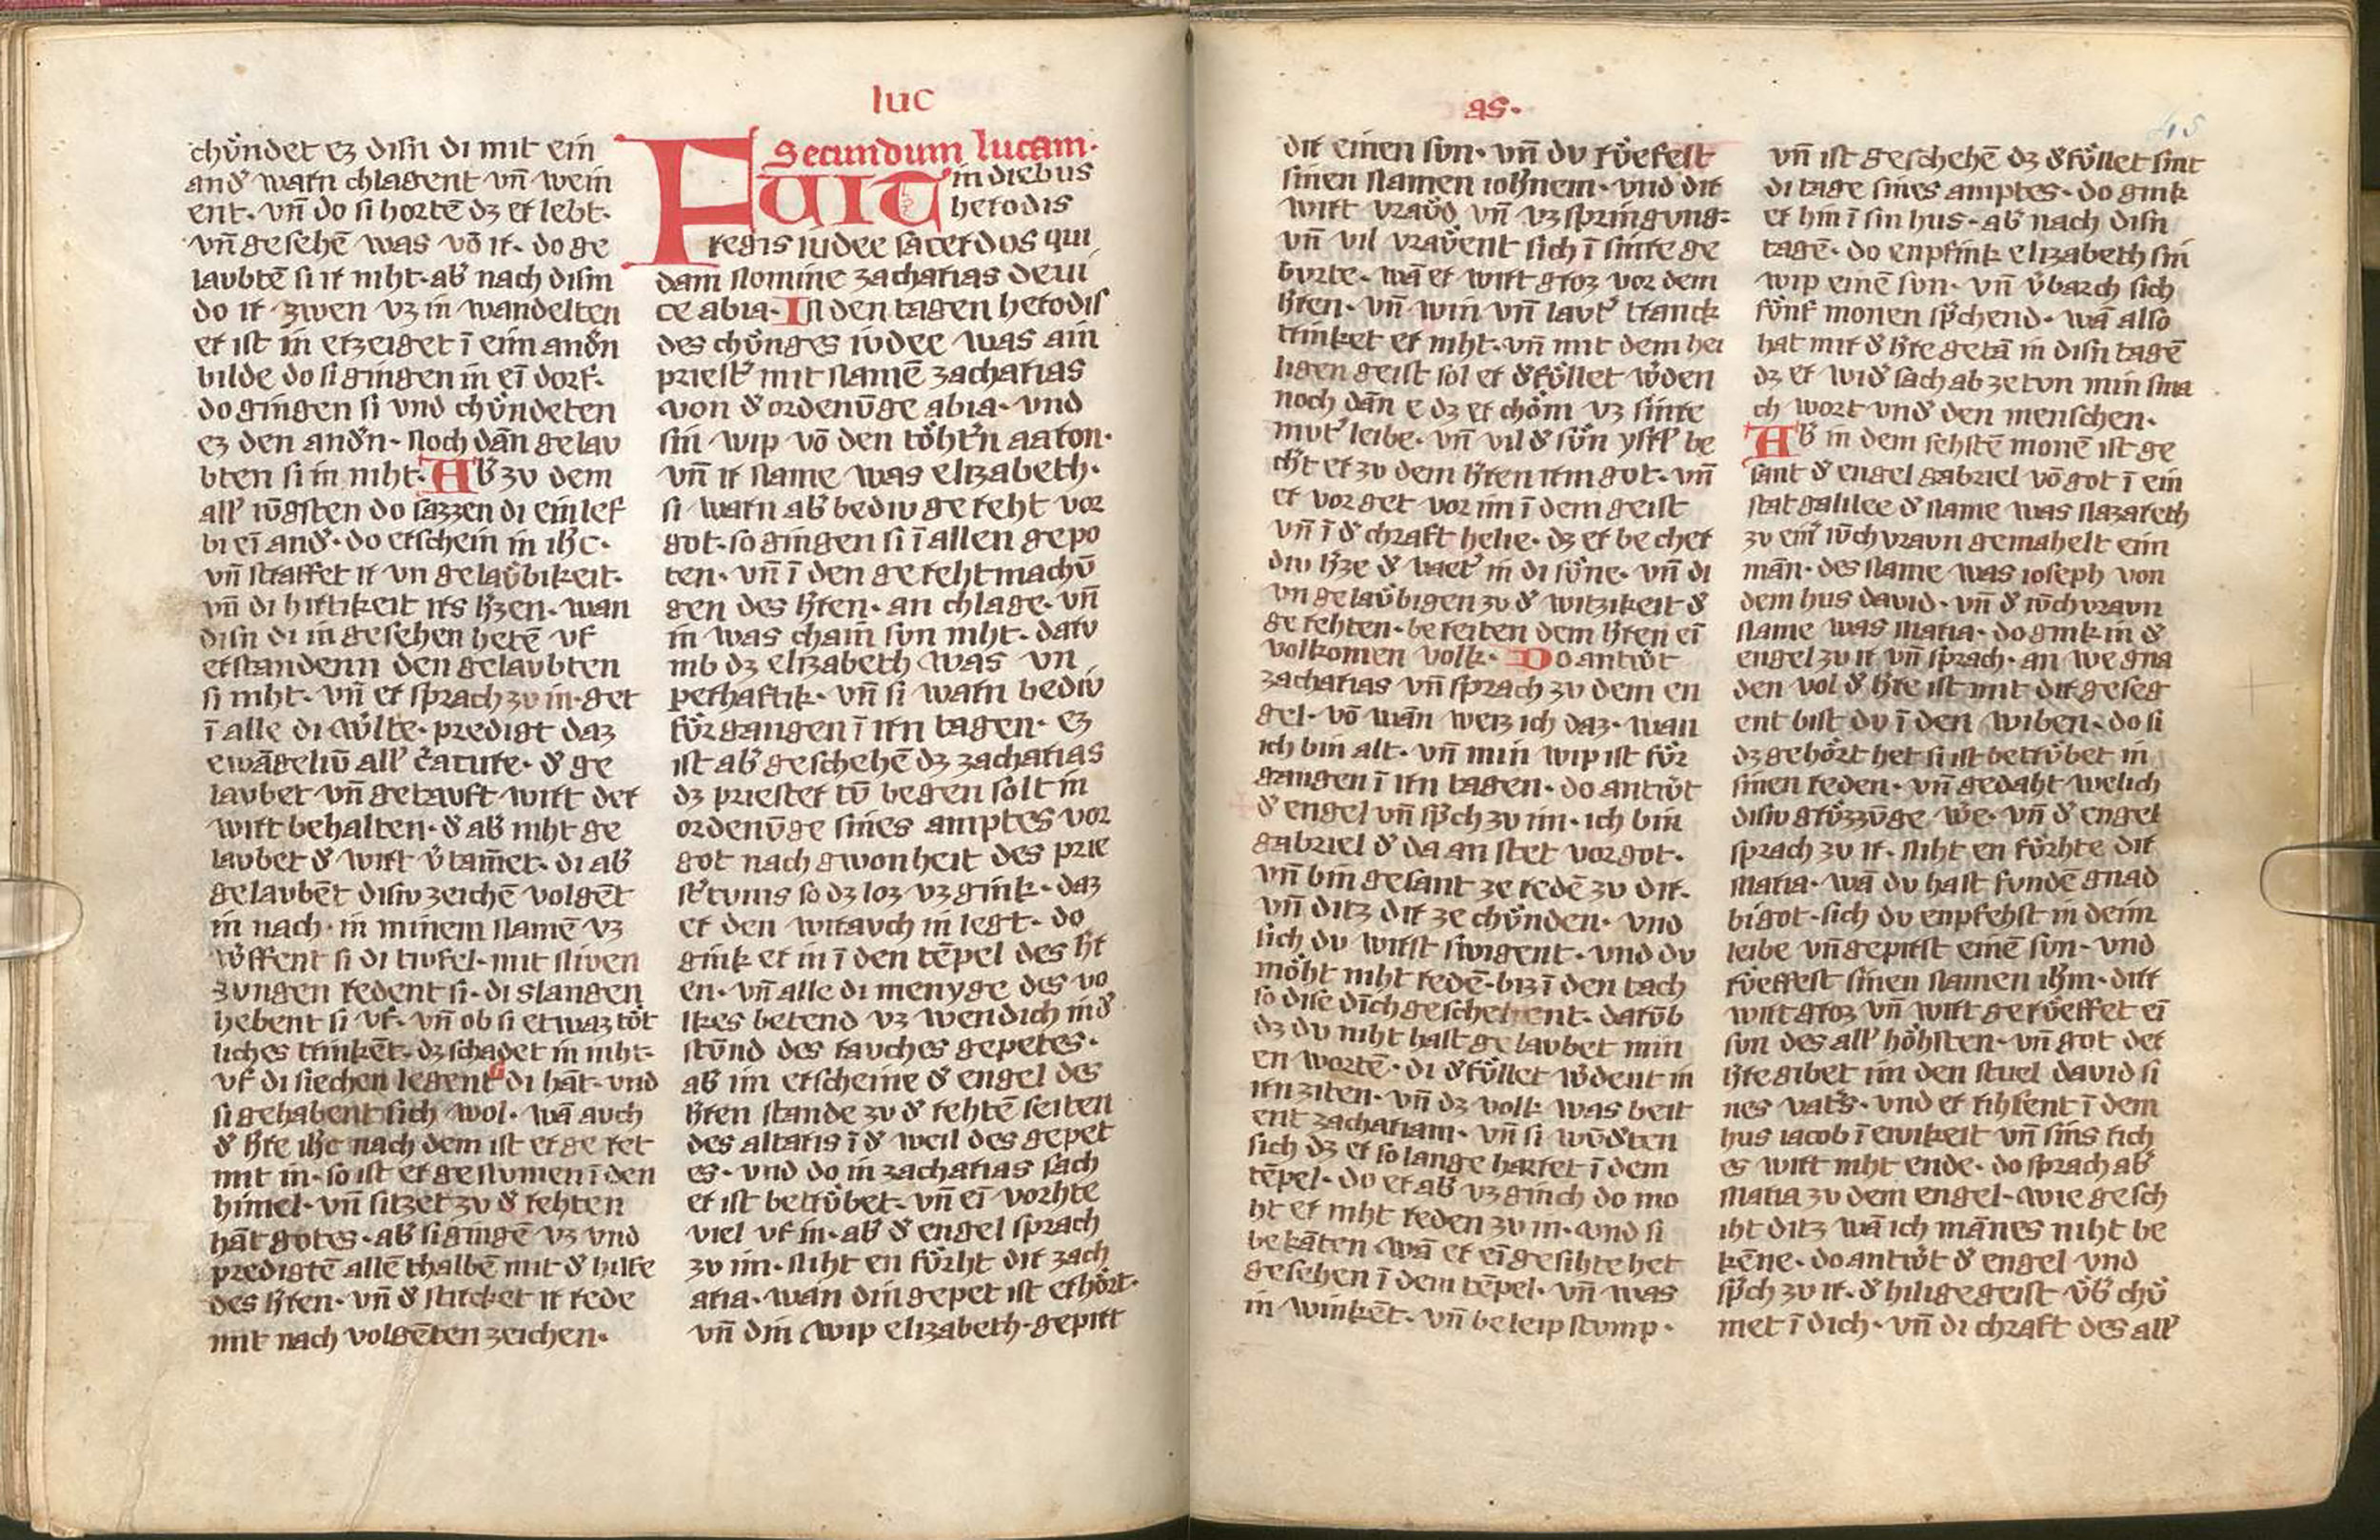 luc
chůndet ez disn di mit ein
and᾽ warn chlagent vn̄ wein
ent· vn̄ do si hortē dz er lebt·
vn̄ gesehē was vō ir· do ge
laubtē si ir niht· ab᾽ nach disin
do ir zwen vz in wandelten
er ist in erzeiget ī eim and᾽n
bilde do si gingen in eī dorf·
do gingen si vnd chůndeten
ez den and᾽n· Noch dān gelau
bten si in niht· Ab᾽ zv dem
all᾽ iv̄gsten do sazzen di einlef
bi eī and᾽· do erschein in ih̄c·
vn̄ straffet ir vn gelaůbikeit·
vn̄ di hirtikeit irs h᾽zen· wan
disn di in gesehen hetē vf
erstandenn den gelaubten
si niht· vn̄ er sprach zv in· get
ī alle di w᾽lte· predigt daz
ewāgeliū all᾽ c᾽ature· d᾽ ge
laubet vn̄ getauft wirt der
wirt behalten· d᾽ ab᾽ niht ge
laubet d᾽ wirt v᾽tam̄et· di ab᾽
gelaubēt disiv zeichē volgēt
in nach· in minem namē vz
w᾽ffent si di tivfel· mit niven
zungen redent si· di slangen
hebent si vf· vn̄ ob si etwaz tót
liches trinkēt· dz schadet in niht·
vf di siechen legent di hāt· vnd
si gehabent sich wol· wā auch
d᾽ h᾽re ih̄c nach dem ist er ge ret
mit in· so ist er genumen ī den
himel· vn̄ sitzet zv d᾽ rehten
hāt gotes· ab᾽ si gingē vz vnd
predigtē allē thalbē mit d᾽ hilfe
des h᾽ren· vn̄ d᾽ stercket ir rede
mit nach volgēten zeichen·
Secundum lucam·
FUIT in diebus
herodis
regis iudee sacerdos qui
dam nomine zacharias deui
ce abia· In den tagen herodis
des chůnges ivdee was ain
priest᾽ mit namē zacharias
von d᾽ ordenūge abia· vnd
sin wip vō den tóht᾽n aaron·
vn̄ ir name was elizabeth·
si warn ab᾽ bediv ge reht vor
got· so gingen si ī allen gepo
ten· vn̄ ī den ge rehtmachū
gen des h᾽ren· an chlage· vn̄
in was chain̄ svn niht· darv
mb dz elizabeth was vn
perhaftik· vn̄ si warn bediv
fůr gangen ī irn tagen· ez
ist ab᾽ geschehē dz zacharias
dz priester tv̄ began solt in
ordenv̄ge sines amptes vor
got nach gwonheit des prie
st᾽tvms so dz loz vz gink· daz
er den wirauch in legt· do
gink er in ī den tēpel des h᾽r
en· vn̄ alle di menyge des vo
lkes betend vz wendich in d᾽
stūnd des rauches gepetes·
ab᾽ im erscheine d᾽ engel des
h᾽ren stande zv d᾽ rehtē seiten
des altaris ī d᾽ weil des gepet
es· vnd do in zacharias sach
er ist betrůbet· vn̄ eī vorhte
viel vf in· ab᾽ d᾽ engel sprach
zv im· niht en fůrht dir zach
aria· wan din gepet ist erhórt·
vn̄ din wip elizabeth· gepirt
as·
45
dir einen svn· vn̄ dv růefest
sinen namen ioh̄nem· vnd dir
wirt vraůd vn̄ vz springvng·
vn̄ vil vraůent sich ī sinre ge
burte· wā er wirt groz vor dem
h᾽ren· vn̄ win vn̄ laut᾽ tranck
trinket er niht· vn̄ mit dem hei
ligen geist sol er d᾽fůllet w᾽den
noch dān e dz er chóm vz sinre
mut᾽ leibe· vn̄ vil d᾽ sůn ysrl᾽ be
ch᾽t er zv dem h᾽ren irm got· vn̄
er vor get vor im ī dem geist
vn̄ ī d᾽ chraft helie· dz er be cher
div h᾽ze d᾽ vaet᾽ in di sůne· vn̄ di
vn gelaůbigen zv d᾽ witzikeit d᾽
ge rehten· be reiten dem h᾽ren eī
volkomen volk· Do antw᾽t
zacharias vn̄ sprach zv dem en
gel· vō wān weiz ich daz· wan
ich bin alt· vn̄ min wip ist fůr
gangen ī irn tagen· do antw᾽t
d᾽ engel vn̄ sp᾽ch zv im· ich bin
gabriel d᾽ da an stet vor got·
vn̄ bin gesant ze redē zv dir·
vn̄ ditz dir ze chůnden· vnd
sich dv wirst swigent· vnd dv
móht niht redē· biz ī den tach
so dise dīch geschehent· darūb
dz dv niht hast gelaubet min
en wortē· di d᾽fůllet w᾽dent in
irn ziten· vn̄ dz volk was beit
ent zachariam· vn̄ si wūd᾽ten
sich dz er so lange harret ī dem
tēpel· do er ab᾽ vz ginch do mo
ht er niht reden zv in· vnd si
be kāten wā er eī gesihte het
gesehen ī dem tēpel· vn̄ was
in winkēt· vn̄ be leip stvmp·
vn̄ ist geschehē dz d᾽fůllet sint
di tage sines amptes· do gink
er hin ī sin hus· ab᾽ nach disn
tagē· do enpfink elizabeth sin
wip einē svn· vn̄ v᾽barch sich
fůnf monen sp᾽chend· wā also
hat mir d᾽ h᾽re getā in disn tagē
dz er wid᾽ sach ab zetvn min sma
ch wort vnd᾽ den menschen·
Ab᾽ in dem sehstē monē ist ge
sant d᾽ engel gabriel vō got ī ein
stat galilee d᾽ name was nazareth
zv ein᾽ iūchvravn gemahelt eim
mān· des name was ioseph von
dem hus dauid· vn̄ d᾽ iūchvravn
name was maria· do gink in d᾽
engel zv ir vn̄ sprach· an we gna
den vol d᾽ h᾽re ist mit dir geseg
ent bist dv ī den wiben· do si
dz gehórt het si ist betrůbet in
sinen reden· vn̄ gedaht welich
disiv grůzzūge w᾽e· vn̄ d᾽ engel
sprach zv ir· niht en fůrhte dir
maria· wā dv hast fundē gnad
bi got· sich dv enpfehst in deim
leibe vn̄ gepirst einē svn· vnd
růeffest sinen namen ih̄m· dirr
wirt groz vn̄ wirt gerůeffet eī
svn des all᾽ hóhsten· vn̄ got der
h᾽re gibet im den stuel dauid si
nes vat᾽s· vnd er rihsent ī dem
hus iacob ī ewikeit vn̄ sins rich
es wirt niht ende· do sprach ab᾽
maria zv dem engel· wie gesch
iht ditz wā ich mānes niht be
kēne· do antw᾽t d᾽ engel vnd
sp᾽ch zv ir· d᾽ hilige geist v᾽b᾽ chů
met ī dich· vn̄ di chraft des all᾽